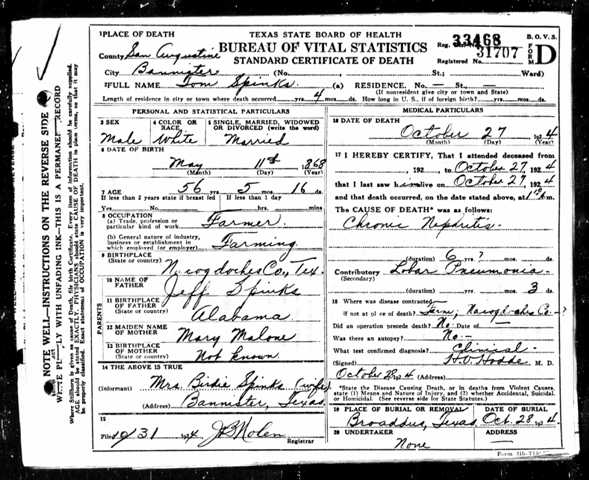 TEXAS STATE BOARD OF HEALTH
BUREAU OF VITAL STATISTICS
STANDARD CERTIFICATE OF DEATH
B. O. V. S.
FORM D
Reg. 33468
Registered No. 31707
1 PLACE OF DEATH
County San Augustine
City Bannister (No. St.; Ward)
2 FULL NAME Tom Spinks (a) RESIDENCE. No. — St. —
(If nonresident give city or town and State)
Length of residence in city or town where death occurred yrs. 4 mos. ds. How long in U. S., if of foreign birth? yrs. mos. ds.
PERSONAL AND STATISTICAL PARTICULARS
3 SEX
Male
4 COLOR OR RACE
White
5 SINGLE, MARRIED, WIDOWED OR DIVORCED (write the word)
Married
6 DATE OF BIRTH
May 11th 1868
(Month) (Day) (Year)
7 AGE
56 yrs. 5 mos. 16 ds.
If less than 2 years state if breast fed
If less than 1 day
Yes No hrs. mins
8 OCCUPATION
(a) Trade, profession or particular kind of work Farmer
(b) General nature of industry, business or establishment in which employed (or employer) Farming
9 BIRTHPLACE
(State or country) Nacogdoches Co., Tex.
PARENTS
10 NAME OF FATHER Jeff Spinks
11 BIRTHPLACE OF FATHER
(State or country) Alabama
12 MAIDEN NAME OF MOTHER Mary Malone
13 BIRTHPLACE OF MOTHER
(State or country) Not known
14 THE ABOVE IS TRUE
(Informant) Mrs. Birdie Spinks (wife)
(Address) Bannister, Texas
15
Filed 10/31 1924 Registrar
MEDICAL PARTICULARS
16 DATE OF DEATH
October 27 1924
(Month) (Day) (Year)
17 I HEREBY CERTIFY, That I attended deceased from
, 192 , to October 27, 1924
that I last saw h alive on October 27, 1924
and that death occurred, on the date stated above, at m.
The CAUSE OF DEATH* was as follows:
Chronic Nephritis
(duration) 6 yrs. ? mos. ds.
Contributory Lobar Pneumonia
(Secondary)
(duration) yrs. mos. 3 ds.
18 Where was disease contracted
if not at place of death? Farm, Nacogdoches Co-?
Did an operation precede death? No Date of
Was there an autopsy? No
What test confirmed diagnosis? Clinical
M. D.
*State the Disease Causing Death, or in deaths from Violent Causes, state (1) Means and Nature of Injury, and (2) whether Accidental, Suicidal or Homicidal. (See reverse side for State Statutes.)
19 PLACE OF BURIAL OR REMOVAL
Broaddus, Texas
DATE OF BURIAL
Oct. 28, 1924
20 UNDERTAKER
None
ADDRESS
NOTE WELL—INSTRUCTIONS ON THE REVERSE SIDE
WRITE PLAINLY WITH UNFADING INK—THIS IS A PERMANENT RECORD